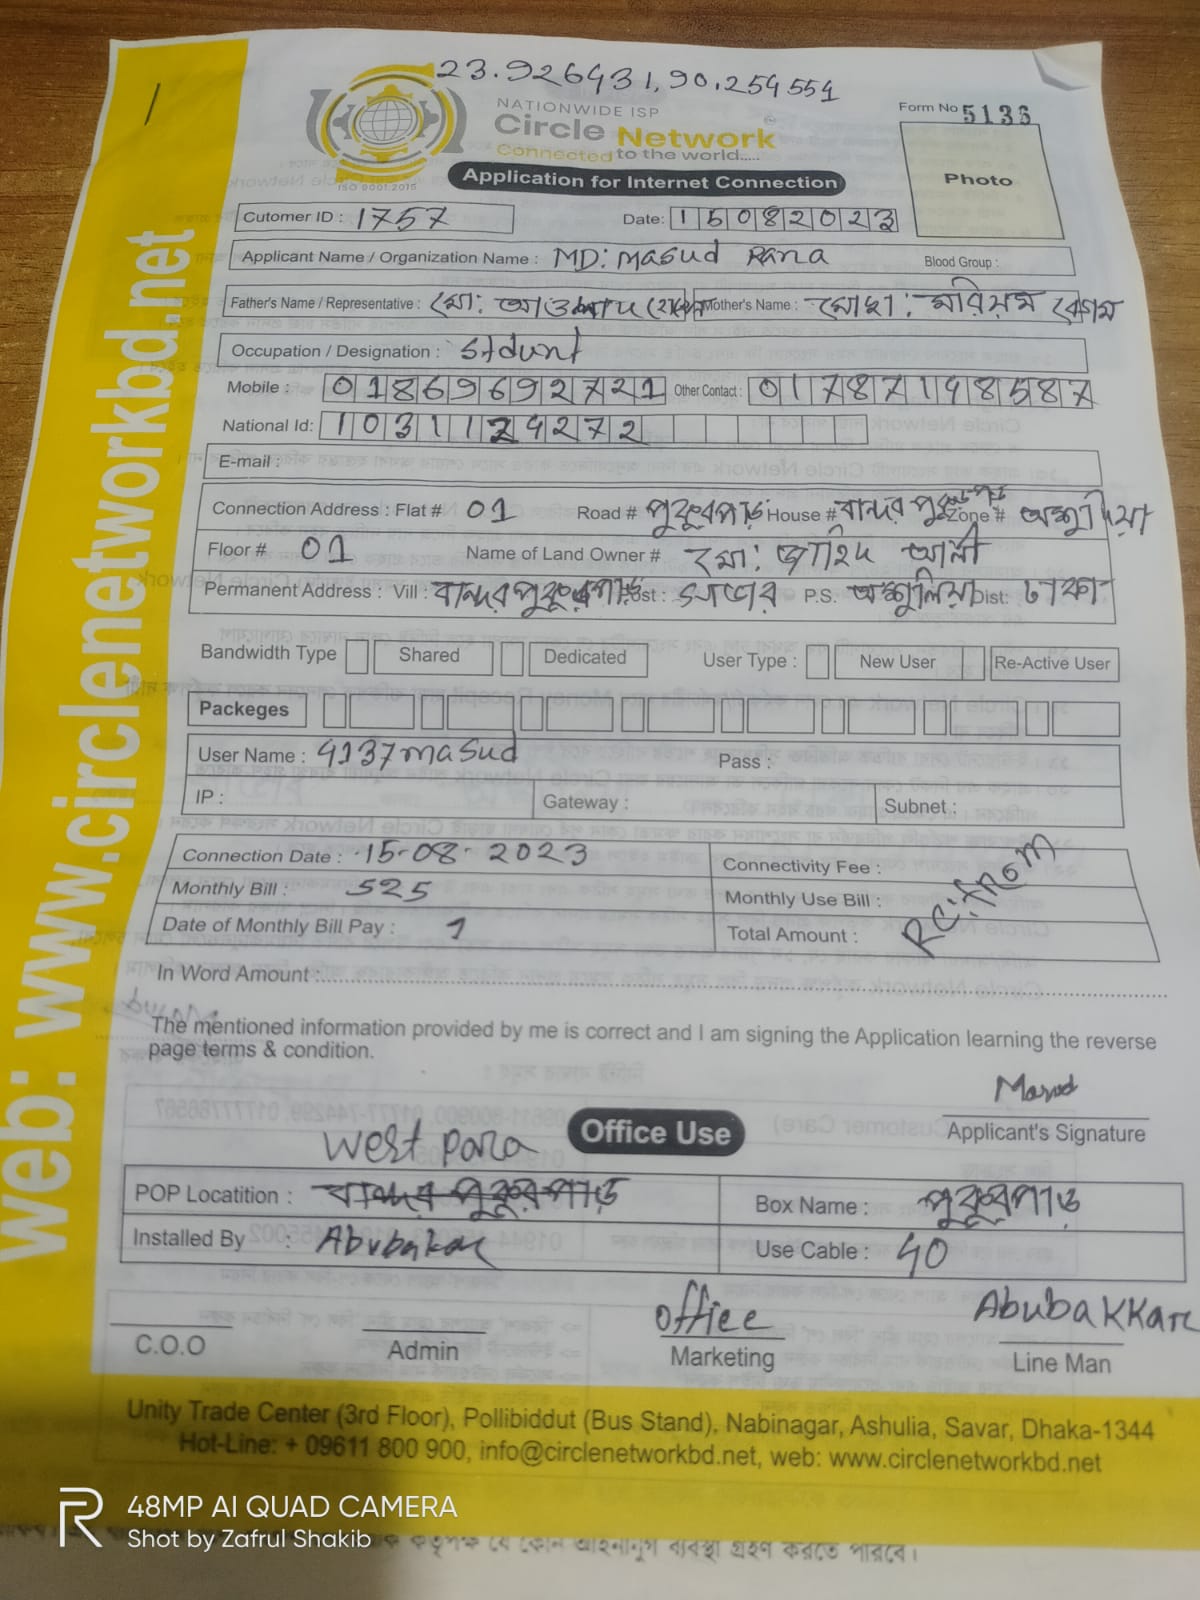 23.926431,90.254551
NATIONWIDE ISP
Circle Network
Connected to the world.....
ISO 9001:2015
Form No 5136
Photo
Application for Internet Connection
Cutomer ID : 1757 Date: 15082023
Applicant Name / Organization Name : MD: Masud Rana Blood Group :
Father's Name / Representative : মো: Mother's Name : মোছা: মরিয়ম বেগম
Occupation / Designation : Stdunt
Mobile : 01869692721 Other Contact : 01787198587
National Id: 1031124272
E-mail :
Connection Address : Flat # 01 Road # পুকুরপাড় House # বান্দর পুকুরপাড় Zone # আশুলিয়া
Floor # 01 Name of Land Owner # মো: জাহিদ আলী
Permanent Address : Vill : বান্দর পুকুরপাড় Post : সাভার P.S. আশুলিয়া Dist: ঢাকা
Bandwidth Type Shared Dedicated User Type : New User Re-Active User
Packeges
User Name : 4137masud Pass :
IP : Gateway : Subnet :
Connection Date : 15-08-2023 Connectivity Fee :
Monthly Bill : 525 Monthly Use Bill :
Date of Monthly Bill Pay : 1 Total Amount :
In Word Amount :
The mentioned information provided by me is correct and I am signing the Application learning the reverse
page terms & condition.
Masud
Applicant's Signature
Office Use
West para
POP Locatition : বান্দর পুকুরপাড় Box Name : পুকুরপাড়
Installed By : Abubakar Use Cable : 40
office AbubaKKar
C.O.O Admin Marketing Line Man
Unity Trade Center (3rd Floor), Pollibiddut (Bus Stand), Nabinagar, Ashulia, Savar, Dhaka-1344
Hot-Line: + 09611 800 900, info@circlenetworkbd.net, web: www.circlenetworkbd.net
web: www.circlenetworkbd.net
48MP AI QUAD CAMERA
Shot by Zafrul Shakib
কর্তৃপক্ষ যে কোন আইনানুগ ব্যবস্থা গ্রহণ করতে পারবে।